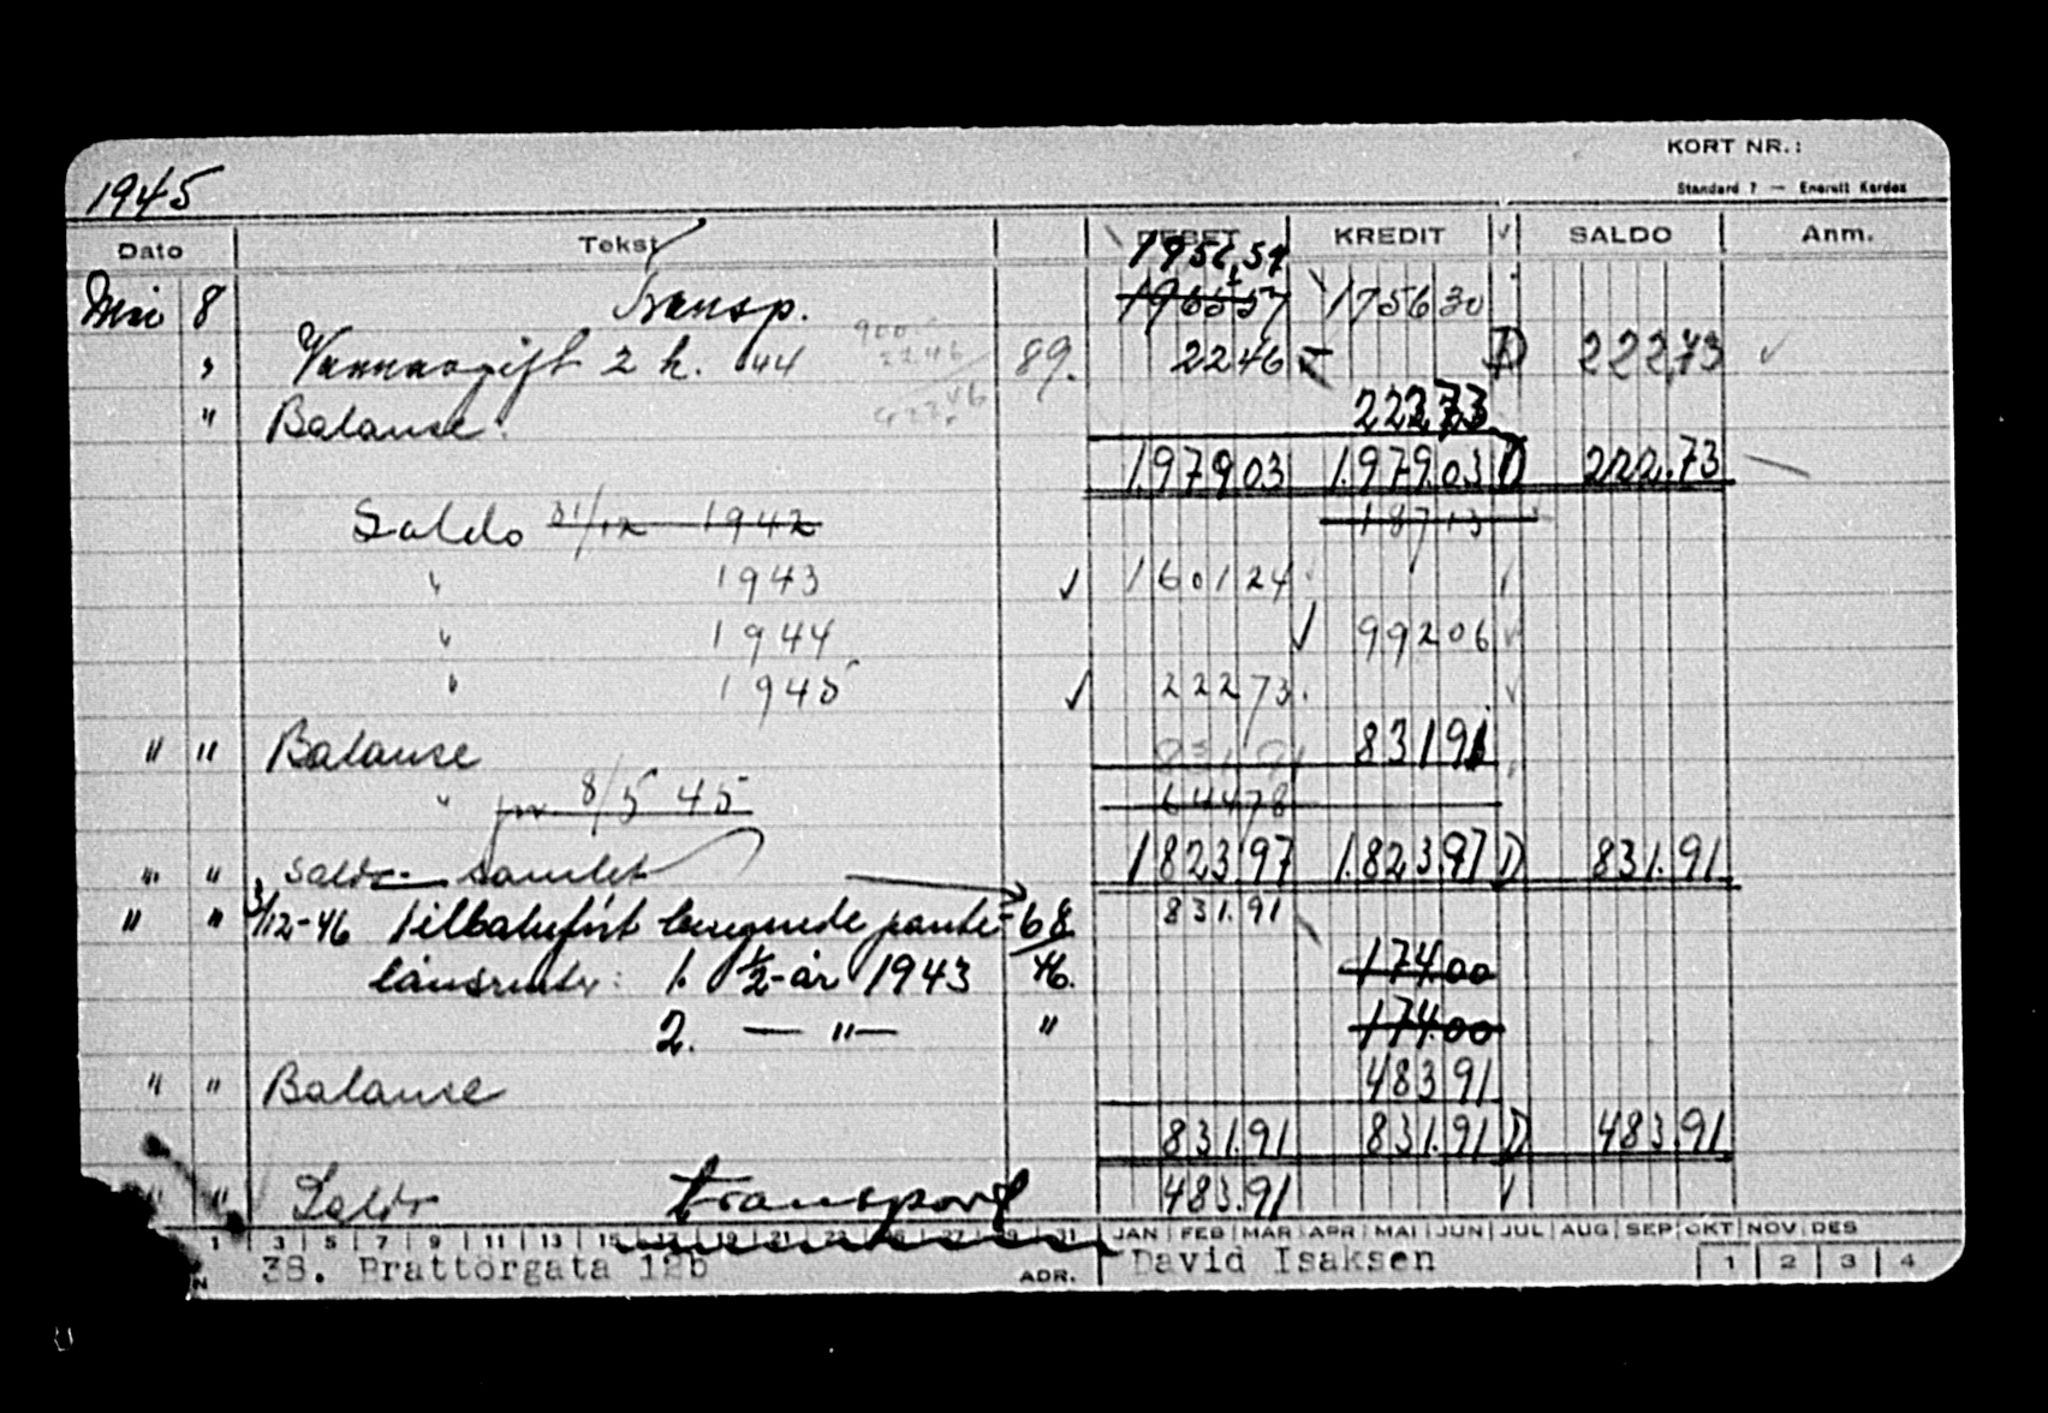 KORT NR.:
Standard 7 — Enerett Kardex
1945
Dato Tekst DEBET KREDIT √ SALDO Anm.
1956,57
Mai 8 Transp. 196557 175630
" Vannavgift 2 h. 44 89. 2246 D 222,73
900
2246
" Balanse. 222,73
1.979.03 1.979.03 D 222.73
Saldo 31/12 1942 18713
" 1943 √ 160124
" 1944 √ 99206
" 1945 √ 22273
" " Balanse 831,91 83191
" pr. 8/5 45 64478
" " Saldo samlet 1823.97 1.823.97 D 831.91
" " 3/12-46 Tilbakeført beregnede pante- 68 831.91
lånsrenter: 1. ½-år 1943 46. 174.00
2. — " — " 174.00
" " Balanse 48391
831.91 831.91 D 483.91
" " Saldo transport 483.91 √
1 3 5 7 9 11 13 15 17 19 21 23 25 27 29 31 JAN FEB MAR APR MAI JUN JUL AUG SEP OKT NOV DES
N 38. Brattörgata 12b ADR. David Isaksen 1 2 3 4